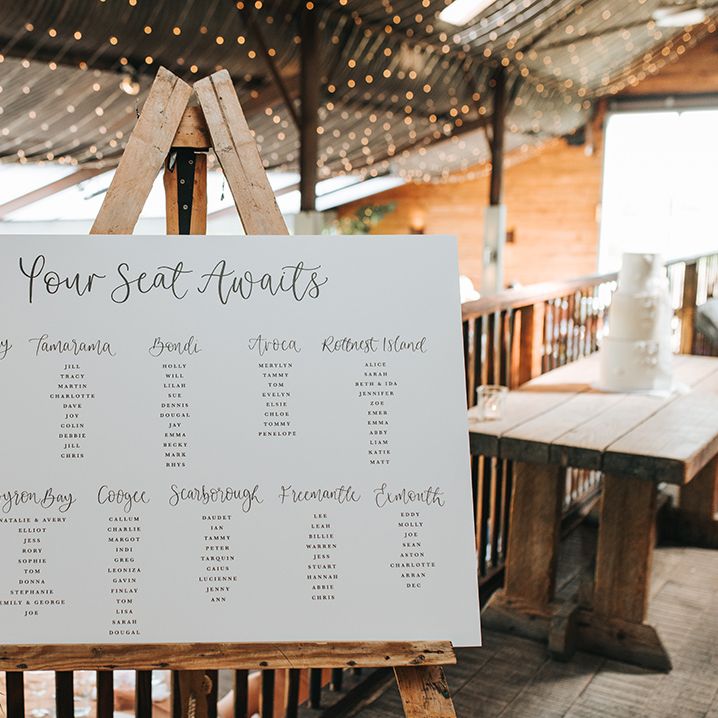 Your Seat Awaits
Tamarama
JILL
TRACY
MARTIN
CHARLOTTE
DAVE
JOY
COLIN
DEBBIE
JILL
CHRIS
Bondi
HOLLY
WILL
LILAH
SUE
DENNIS
DOUGAL
JAY
EMMA
BECKY
MARK
RHYS
Avoca
MERYLYN
TAMMY
TOM
EVELYN
ELSIE
CHLOE
TOMMY
PENELOPE
Rottnest Island
ALICE
SARAH
BETH & IDA
JENNIFER
ZOE
EMER
EMMA
ABBY
LIAM
KATIE
MATT
Byron Bay
NATALIE & AVERY
ELLIOT
JESS
RORY
SOPHIE
TOM
DONNA
STEPHANIE
EMILY & GEORGE
JOE
Coogee
CALLUM
CHARLIE
MARGOT
INDI
GREG
LEONIZA
GAVIN
FINLAY
TOM
LISA
SARAH
DOUGAL
Scarborough
DAUDET
IAN
TAMMY
PETER
TARQUIN
CAIUS
LUCIENNE
JENNY
ANN
Freemantle
LEE
LEAH
BILLIE
WARREN
JESS
STUART
HANNAH
ABBIE
CHRIS
Exmouth
EDDY
MOLLY
JOE
SEAN
ASTON
CHARLOTTE
ARRAN
DEC